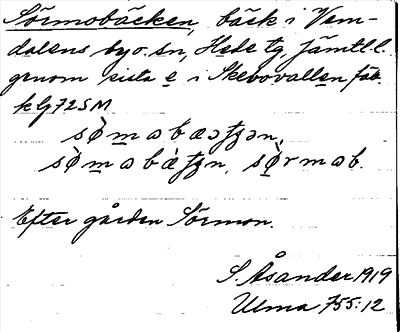 Sörmobäcken, bäck i Vem-
dalens by o. sn, Hede tg Jämtl. l.
genom sista e i Skevovallen fäb.
kG72SM
sø̀mabæəʈʂən,
sø̀mabæ̀ʈʂn, sø̀rmab.
Efter gården Sörmon.
S. Åsander 1919
Ulma 755:12